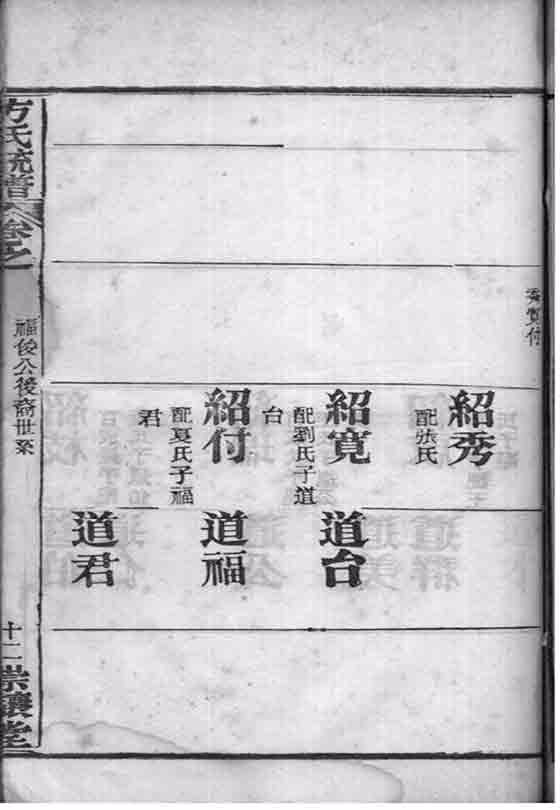 秀寬付
紹秀
配張氏
紹寬
配劉氏子道
台
道台
紹付
配夏氏子福
君
道福
道君
方氏統譜
卷之一
福俊公後裔世系
十二
崇讓堂